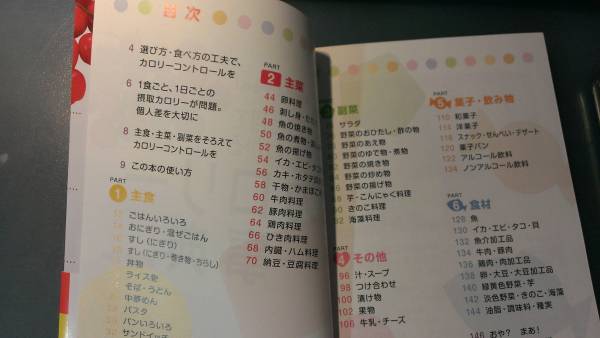 目次
4 選び方・食べ方の工夫で、
カロリーコントロールを
6 1食ごと、1日ごとの
摂取カロリーが問題。
個人差を大切に
8 主食・主菜・副菜をそろえて
カロリーコントロールを
9 この本の使い方
PART
1 主食
ごはんいろいろ
おにぎり・混ぜごはん
すし(にぎり)
すし(にぎり・巻き物・ちらし)
丼物
ライス物
そば・うどん
中華めん
パスタ
パンいろいろ
サンドイッチ
PART
2 主菜
44 卵料理
46 刺し身・
48 魚の焼き物
50 魚の煮物・
52 魚の揚げ物
54 イカ・エビ・タコ
56 カキ・ホタテ
58 干物・かまぼこ
60 牛肉料理
62 豚肉料理
64 鶏肉料理
66 ひき肉料理
68 内臓・ハム料理
70 納豆・豆腐料理
副菜
サラダ
野菜のおひたし・酢の物
野菜のあえ物
野菜のゆで物・煮物
野菜の焼き物
野菜の炒め物
野菜の揚げ物
芋・こんにゃく料理
きのこ料理
海藻料理
PART
4 その他
96 汁・スープ
98 つけ合わせ
100 漬け物
102 果物
106 牛乳・チーズ
PART
5 菓子・飲み物
110 和菓子
114 洋菓子
118 スナック・せんべい・デザート
120 菓子パン
122 アルコール飲料
134 ノンアルコール飲料
PART
6 食材
128 魚
130 イカ・エビ・タコ・貝
132 魚介加工品
134 牛肉・豚肉
136 鶏肉・肉加工品
138 卵・大豆・大豆加工品
140 緑黄色野菜・芋
142 淡色野菜・きのこ・海藻
144 油脂・調味料・種実
146 おや? まあ!